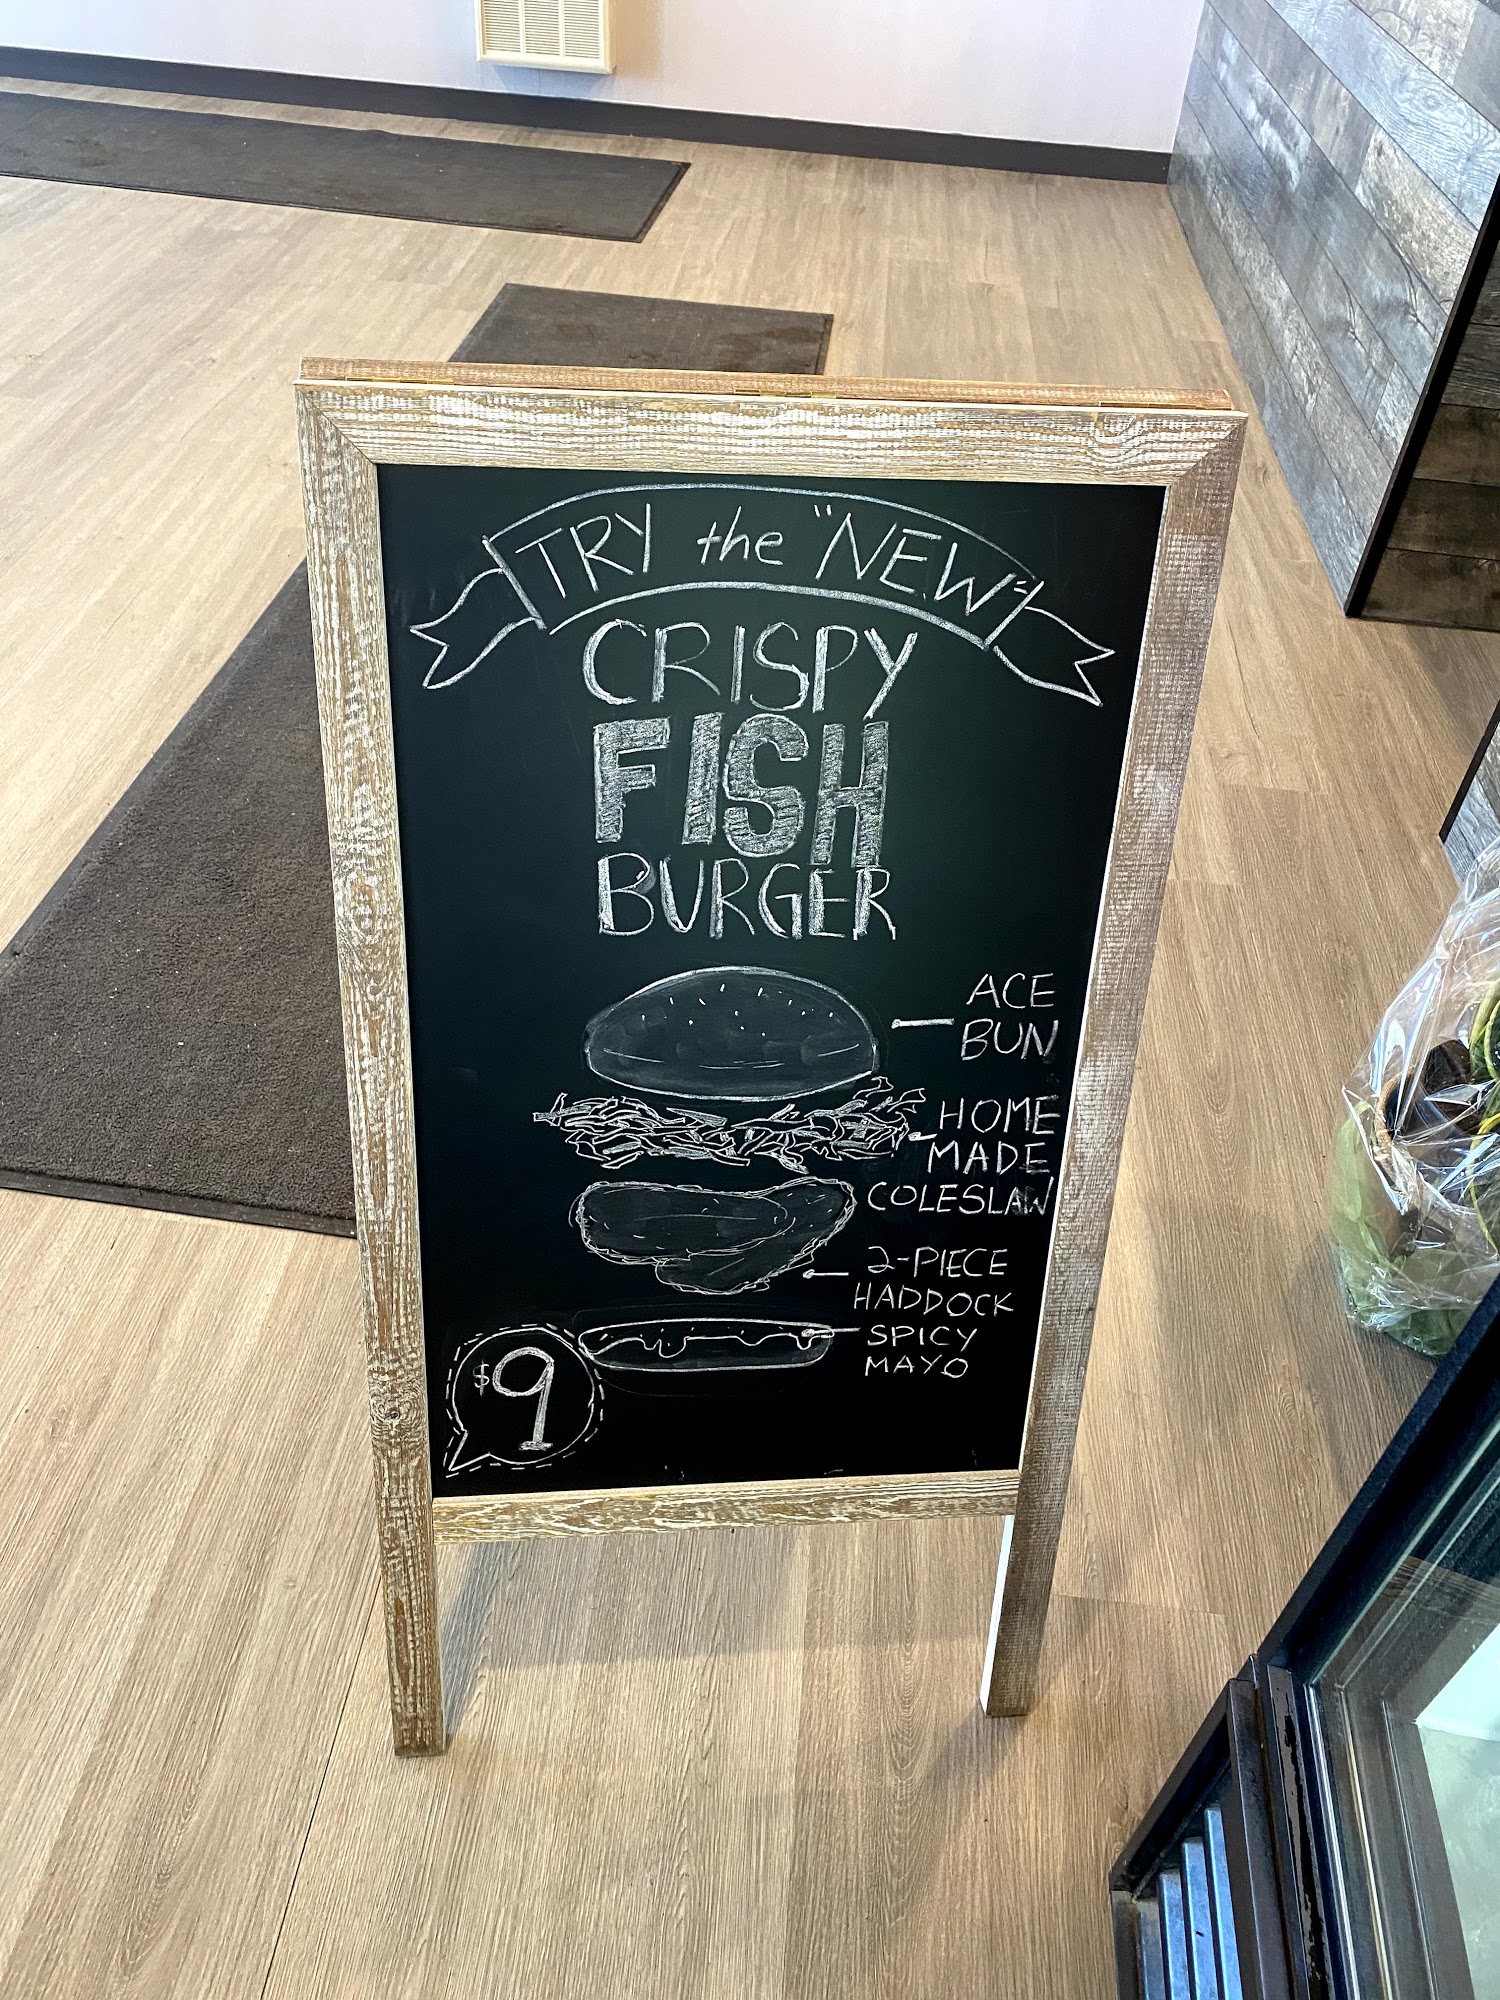 TRY the "NEW"
CRISPY
FISH
BURGER
ACE
BUN
HOME
MADE
COLESLAW
2-PIECE
HADDOCK
SPICY
MAYO
$9